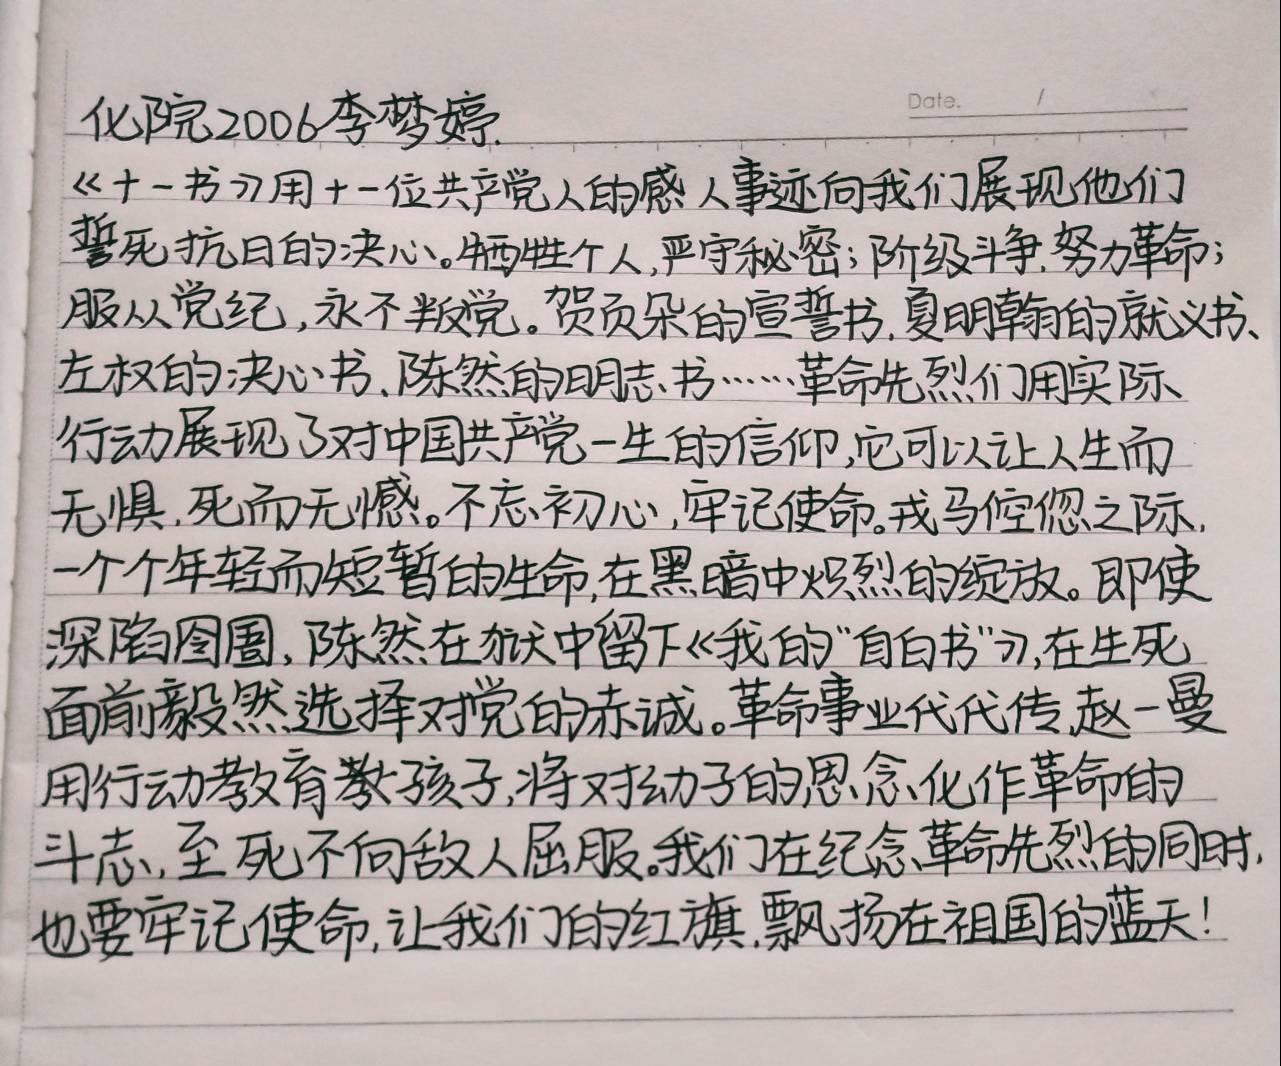 Date. /
化院2006李梦婷.
《十一书》用十一位共产党人的感人事迹向我们展现他们
誓死抗日的决心。牺牲个人,严守秘密;阶级斗争,努力革命;
服从党纪,永不叛党。贺页朵的宣誓书,夏明翰的就义书、
左权的决心书、陈然的明志书……革命先烈们用实际
行动展现了对中国共产党一生的信仰,它可以让人生而
无惧,死而无憾。不忘初心,牢记使命。戎马倥偬之际,
一个个年轻而短暂的生命,在黑暗中炽烈的绽放。即使
深陷囹圄,陈然在狱中留下《我的"自白书"》,在生死
面前毅然选择对党的赤诚。革命事业代代传,赵一曼
用行动教育教孩子,将对幼子的思念化作革命的
斗志,至死不向敌人屈服。我们在纪念革命先烈的同时,
也要牢记使命,让我们的红旗,飘扬在祖国的蓝天!